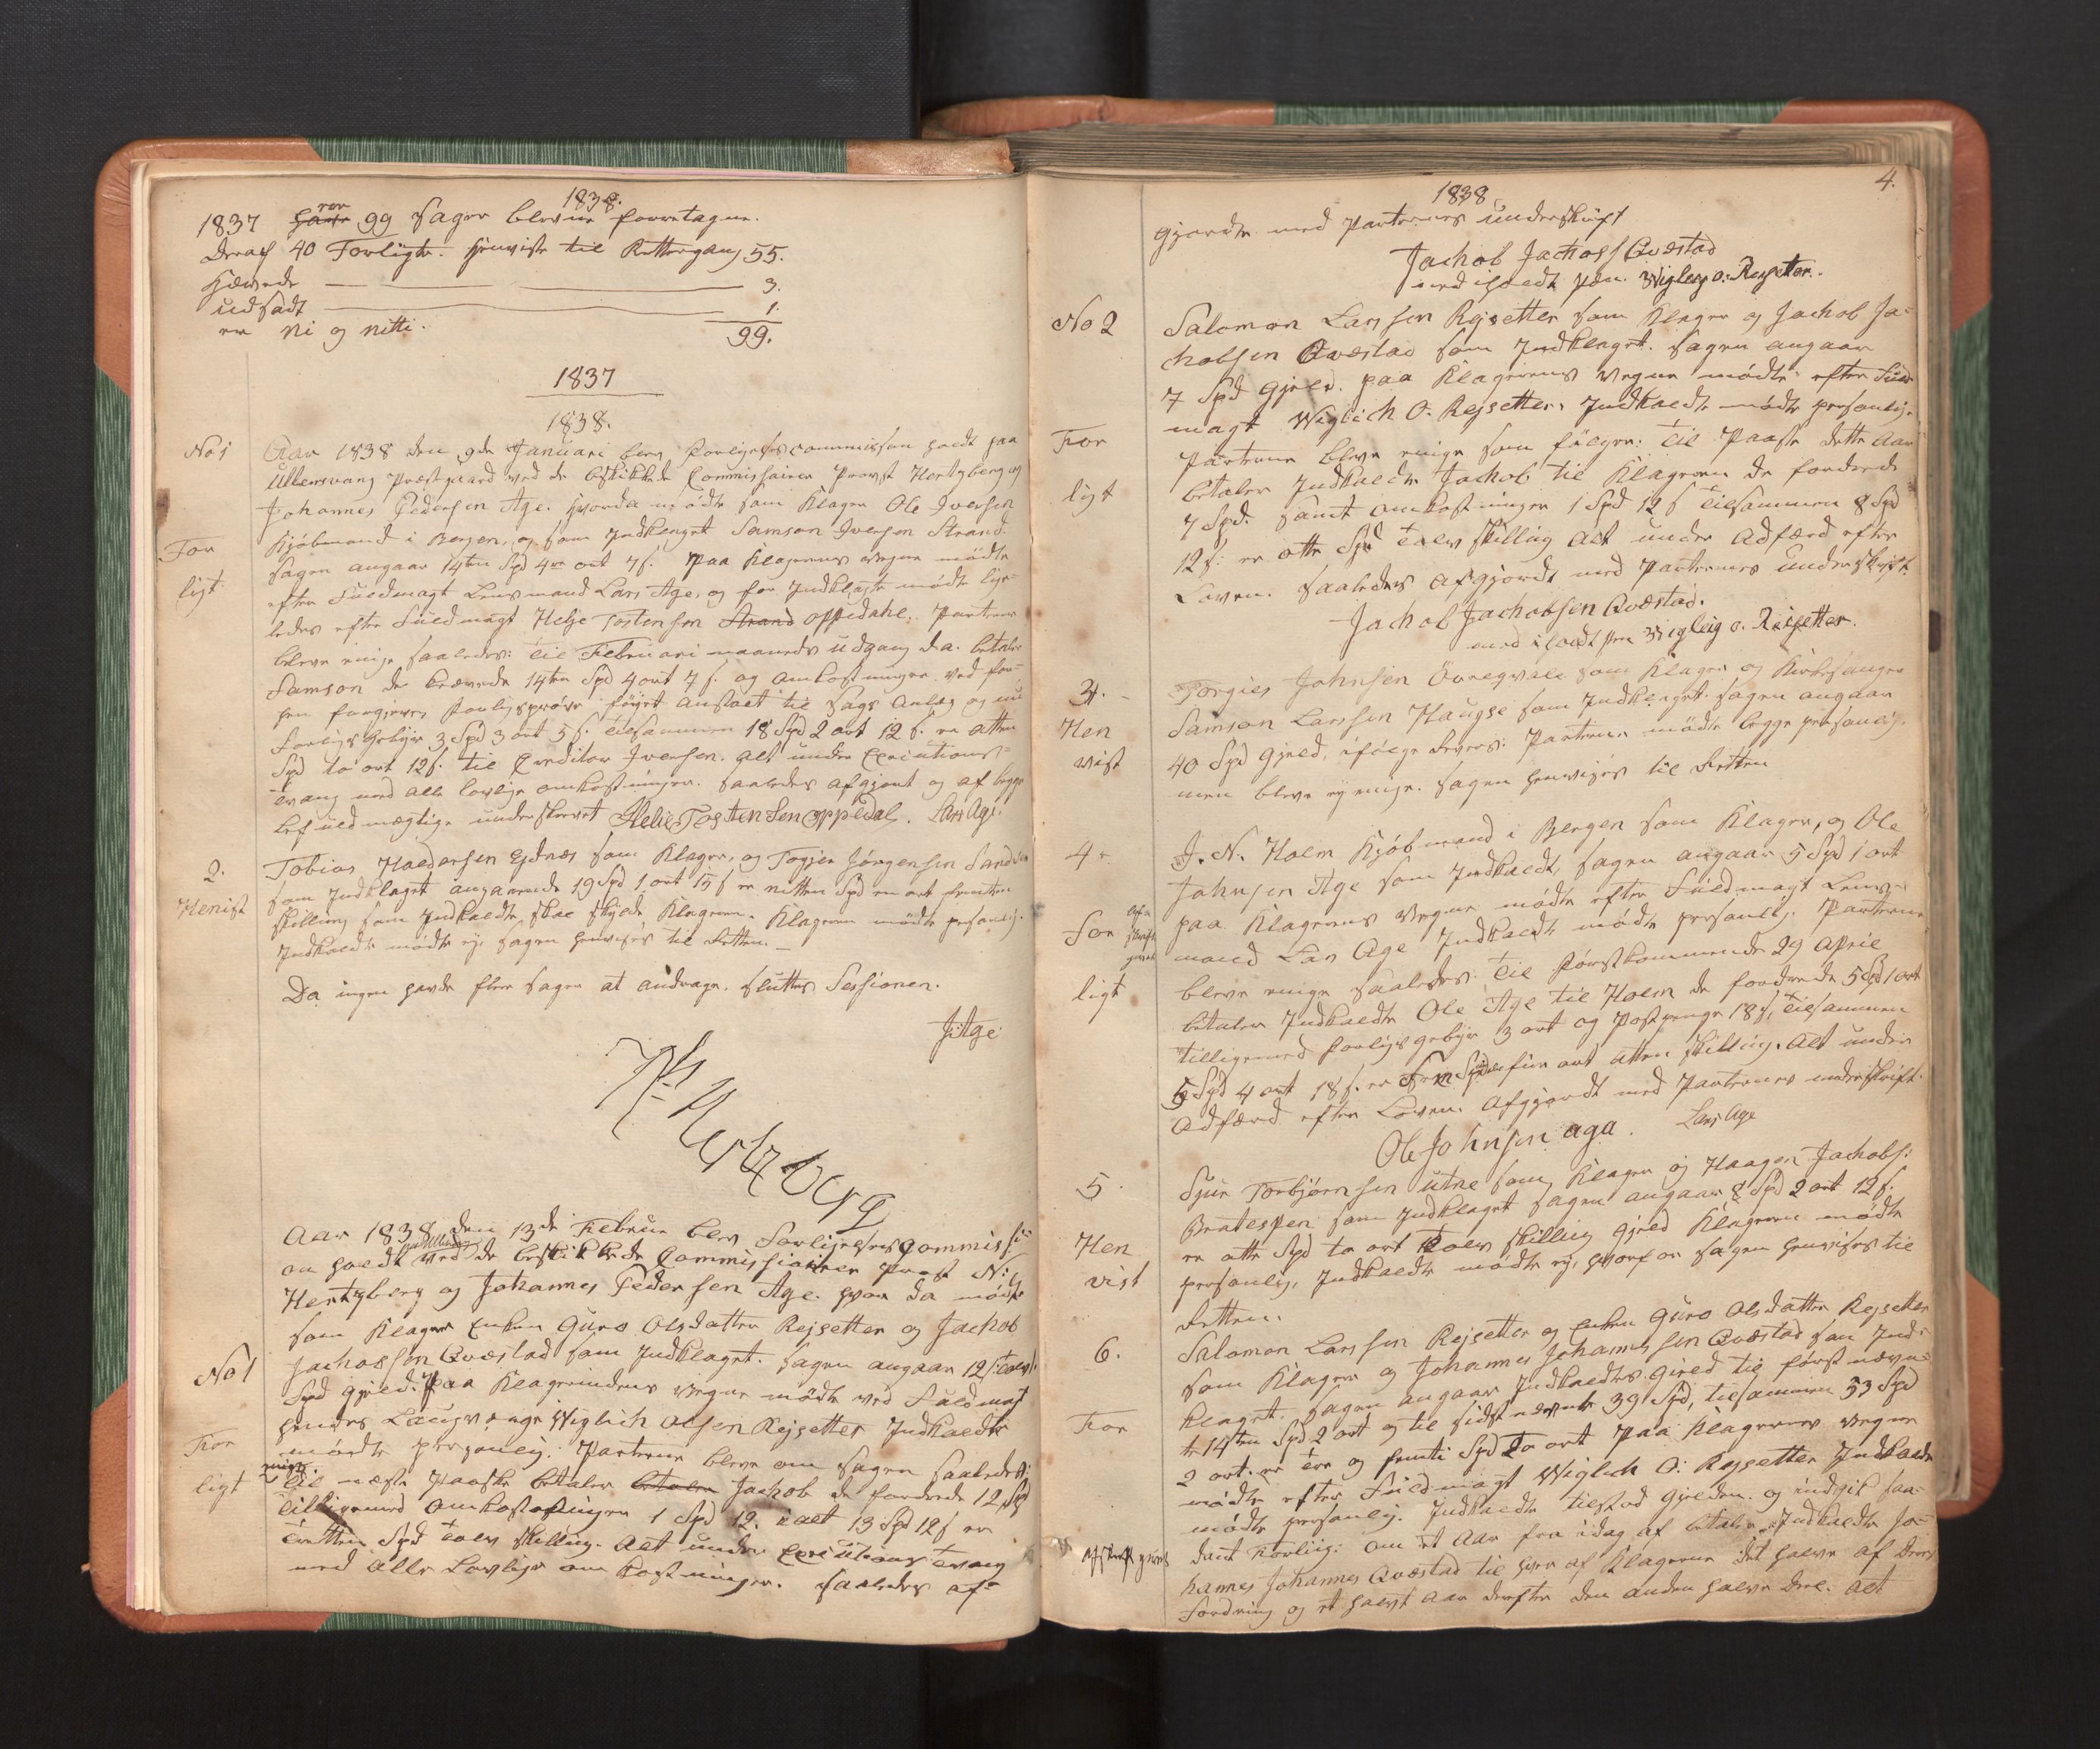 1838.
1837 ere 99 Sager blevne foretagne.
Deraf 40 Forligte. Henviste til Rettergang 55.
Hævede 3.
udsadt 1.
er Ni og nitti. 99.
1837
1838.
No 1 Aar 1838 den 9de Januari blev Forligelsescommission holdt paa
Ullensvang Præstegaard ved de beskikkede Commissairer Provst Hertzberg og
Johannes Pedersen Age. Hvorda mødte som Klager Ole Iversen
Kjøbmand i Bergen, og som Indklaget Samson Iversen Strand.
For
Sagen angaar 14ten Spd 4re ort 7 s. Paa Klagerens Vegne mødte
ligt
efter Fuldmagt Lensmand Lars Age, og for Indklagte mødte lige-
ledes efter Fuldmagt Helje Tostensen Strand Oppedahl. Parterne
bleve enige saaledes: til Februari maaneds udgang d.a. betaler
Samson de krævede 14ten Spd 4 ort 7 s. og omkostninger ved for-
hen forgjeves Forligsprøve føiget anstalt til Sags Anlæg og nu
Forligs Gebyr 3 Spd 3 ort 5 s. tilsammen 18 Spd 2 ort 12 s. er atten
Spd to ort 12 s. til Creditor Iversen. alt under Executions-
tvang med alle lovlige omkostninger. Saaledes afgjort og af begge
befuldmægtige underskrevet Helie Tostensen oppedal. Lars Age.
2. Tobias Haldorsen Ejdnæs som Klager, og Togjer Jørgensen
Henist
som Indklaget angaaende 19 Spd 1 ort 15 s er nitten Spd en ort femten
skilling som Indkaldte skal skylde Klageren. Klageren mødte personlig.
Indkaldte mødte ej. Sagen henvises til Retten.
Da ingen havde flere sager at andrage, sluttes Sessionen.
J: Age
N: Hertzberg
Aar 1838 den 13de Februar blev Forligelses Commissi-
on holdt ved de beskikkede Commissiairer Provst N:
Hertzberg og Johannes Pedersen Age. hvor da mødte
som Klager Enken Guro Olsdatter Rejsetter og Jachob
No 1 Jachobsen Qvæstad som Indklaget. Sagen angaar 12 s: tolv s:
Spd gjeld. Paa Klagerindens vegne mødte ved Fuldmagt
hendes Laugværge Wiglich Olsen Rejsetter Indkaldte
For
mødte personlig. Parterne bleve om Sagen saaledes
enige
ligt
til næste Paaske betaler betaler Jachob de fordrede 12 Spd
tilligemed Omkostninger 1 Spd 12. i alt 13 Spd 12 s er
tretten Spd tolv skilling. Alt under Executions tvang
med alle Lovlige omkostninger. Saaledes af-
4.
1838
gjordte med Parternes Underskrift
Jachob Jachobs Qvæstad
med iholdt Pen. Wigleig O: Rejsetter.
No 2 Salomon Larssen Rejsetter som Klager og Jachob Ja-
chobsen Qvæstad som Indklaget. Sagen angaar
7 Spd gjeld. paa Klagerens Vegne mødte efter Fuld-
magt Wiglich O. Rejsetter. Indkaldte mødte personlig.
For
Parterne bleve enige som følger: til Paaske dette Aar
betaler Indkaldte Jachob til Klageren de fordrede
ligt
7 Spd. samt omkostninger 1 Spd 12 s tilsammen 8 Spd
12 s: er otte Spd tolv skilling alt under Adfærd efter
Loven. Saaledes afgjordt med Parternes Underskrift.
Jachob Jachobsen Qvæstad.
med iholdt pen Wigleig O. Reisetter.
3. Torgies Johnsen Øvregvale som Klager og Kirkesanger
Hen
Samson Larssen Haugse som Indklaget. Sagen angaar
vist
40 Spd gjeld, ifølge Revers: Parterne mødte begge personlig.
men bleve ej enige. Sagen henvises til Retten
4. J. N. Holm Kjøbmand i Bergen som Klager, og Ole
Johnsen Age som Indkaldt, Sagen angaar 5 Spd 1 ort
For
paa Klagerens Vegne mødte efter Fuldmagt Lens-
mand Lars Age Indkaldte mødte personlig. Parterne
ligt
bleve enige saaledes: til førstkommende 29 April
betaler Indkaldte Ole Age til Holm de fordrede 5 Spd 1 ort
tilligemed Forligs gebyr 3 ort og Postpenge 18 s, tilsammen
5 Spd 4 ort 18 s. er Fem Spd fire ort atten skilling. Alt under
Adfærd efter Loven. Afgjordt med Parternes underskrift.
Ole Johnsen aga. Lars Age
5. Sjur Torbjørnsen Utne som Klager og Haagen Jachobs:
Bratespen som Indklaget Sagen angaar 8 Spd 2 ort 12 s.
Hen
er otte Spd to ort Tolv skilling gjeld Klageren mødte
vist
personlig, Indkaldte mødte ej, hvorfor Sagen henvises til
Retten.
6. Salomon Larssen Rejsetter og Enken Guro Olsdatter Rejsetter
som Klagere og Johannes Johannessen Qvæstad som Ind-
klaget. Sagen angaar Indkaldtes gjeld til først nævn-
For
te 14ten Spd 2 ort og til sidst nævnte 39 Spd, tilsammen 53 Spd
2 ort: er tre og femti Spd to ort Paa Klagernes vegne
mødte efter Fuldmagt Wiglich O: Rejsetter Indkaldte
mødte personlig. Indkaldte tilstod gjelden. og indgik saa-
dant Forlig: om et Aar fra idag af betaler Indkaldte Jo-
hannes Johannes Qvæstad til hver af Klagerne det halve af Deres
Fordring og et halvt Aar derefter den anden halve Deel. Alt